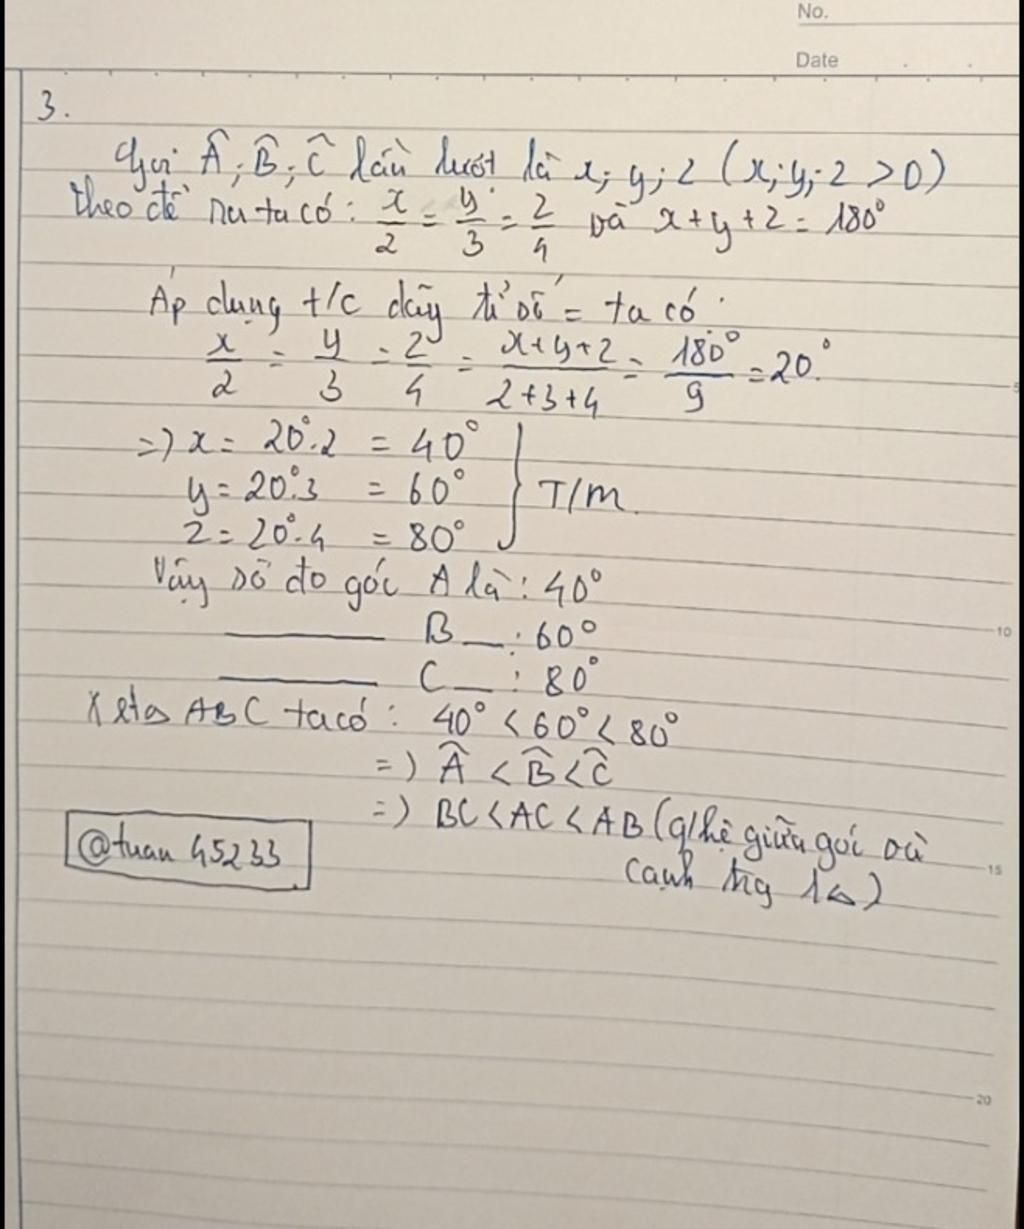 No.
Date
3.
Gọi Â; B̂; Ĉ lần lượt là x; y; z (x; y; z > 0)
theo đề ra ta có: x/2 = y/3 = z/4 và x + y + z = 180°
Áp dụng t/c dãy tỉ số = ta có
x/2 = y/3 = z/4 = x+y+z/2+3+4 = 180°/9 = 20°.
=) x = 20°.2 = 40°
y = 20°.3 = 60°
z = 20°.4 = 80°
T/m.
Vậy số đo góc A là: 40°
B : 60°
C : 80°
Xét Δ ABC ta có: 40° < 60° < 80°
=) Â < B̂ < Ĉ
=) BC < AC < AB (q/hệ giữa góc và
cạnh trg 1Δ)
@tuan 45233
5
10
15
20